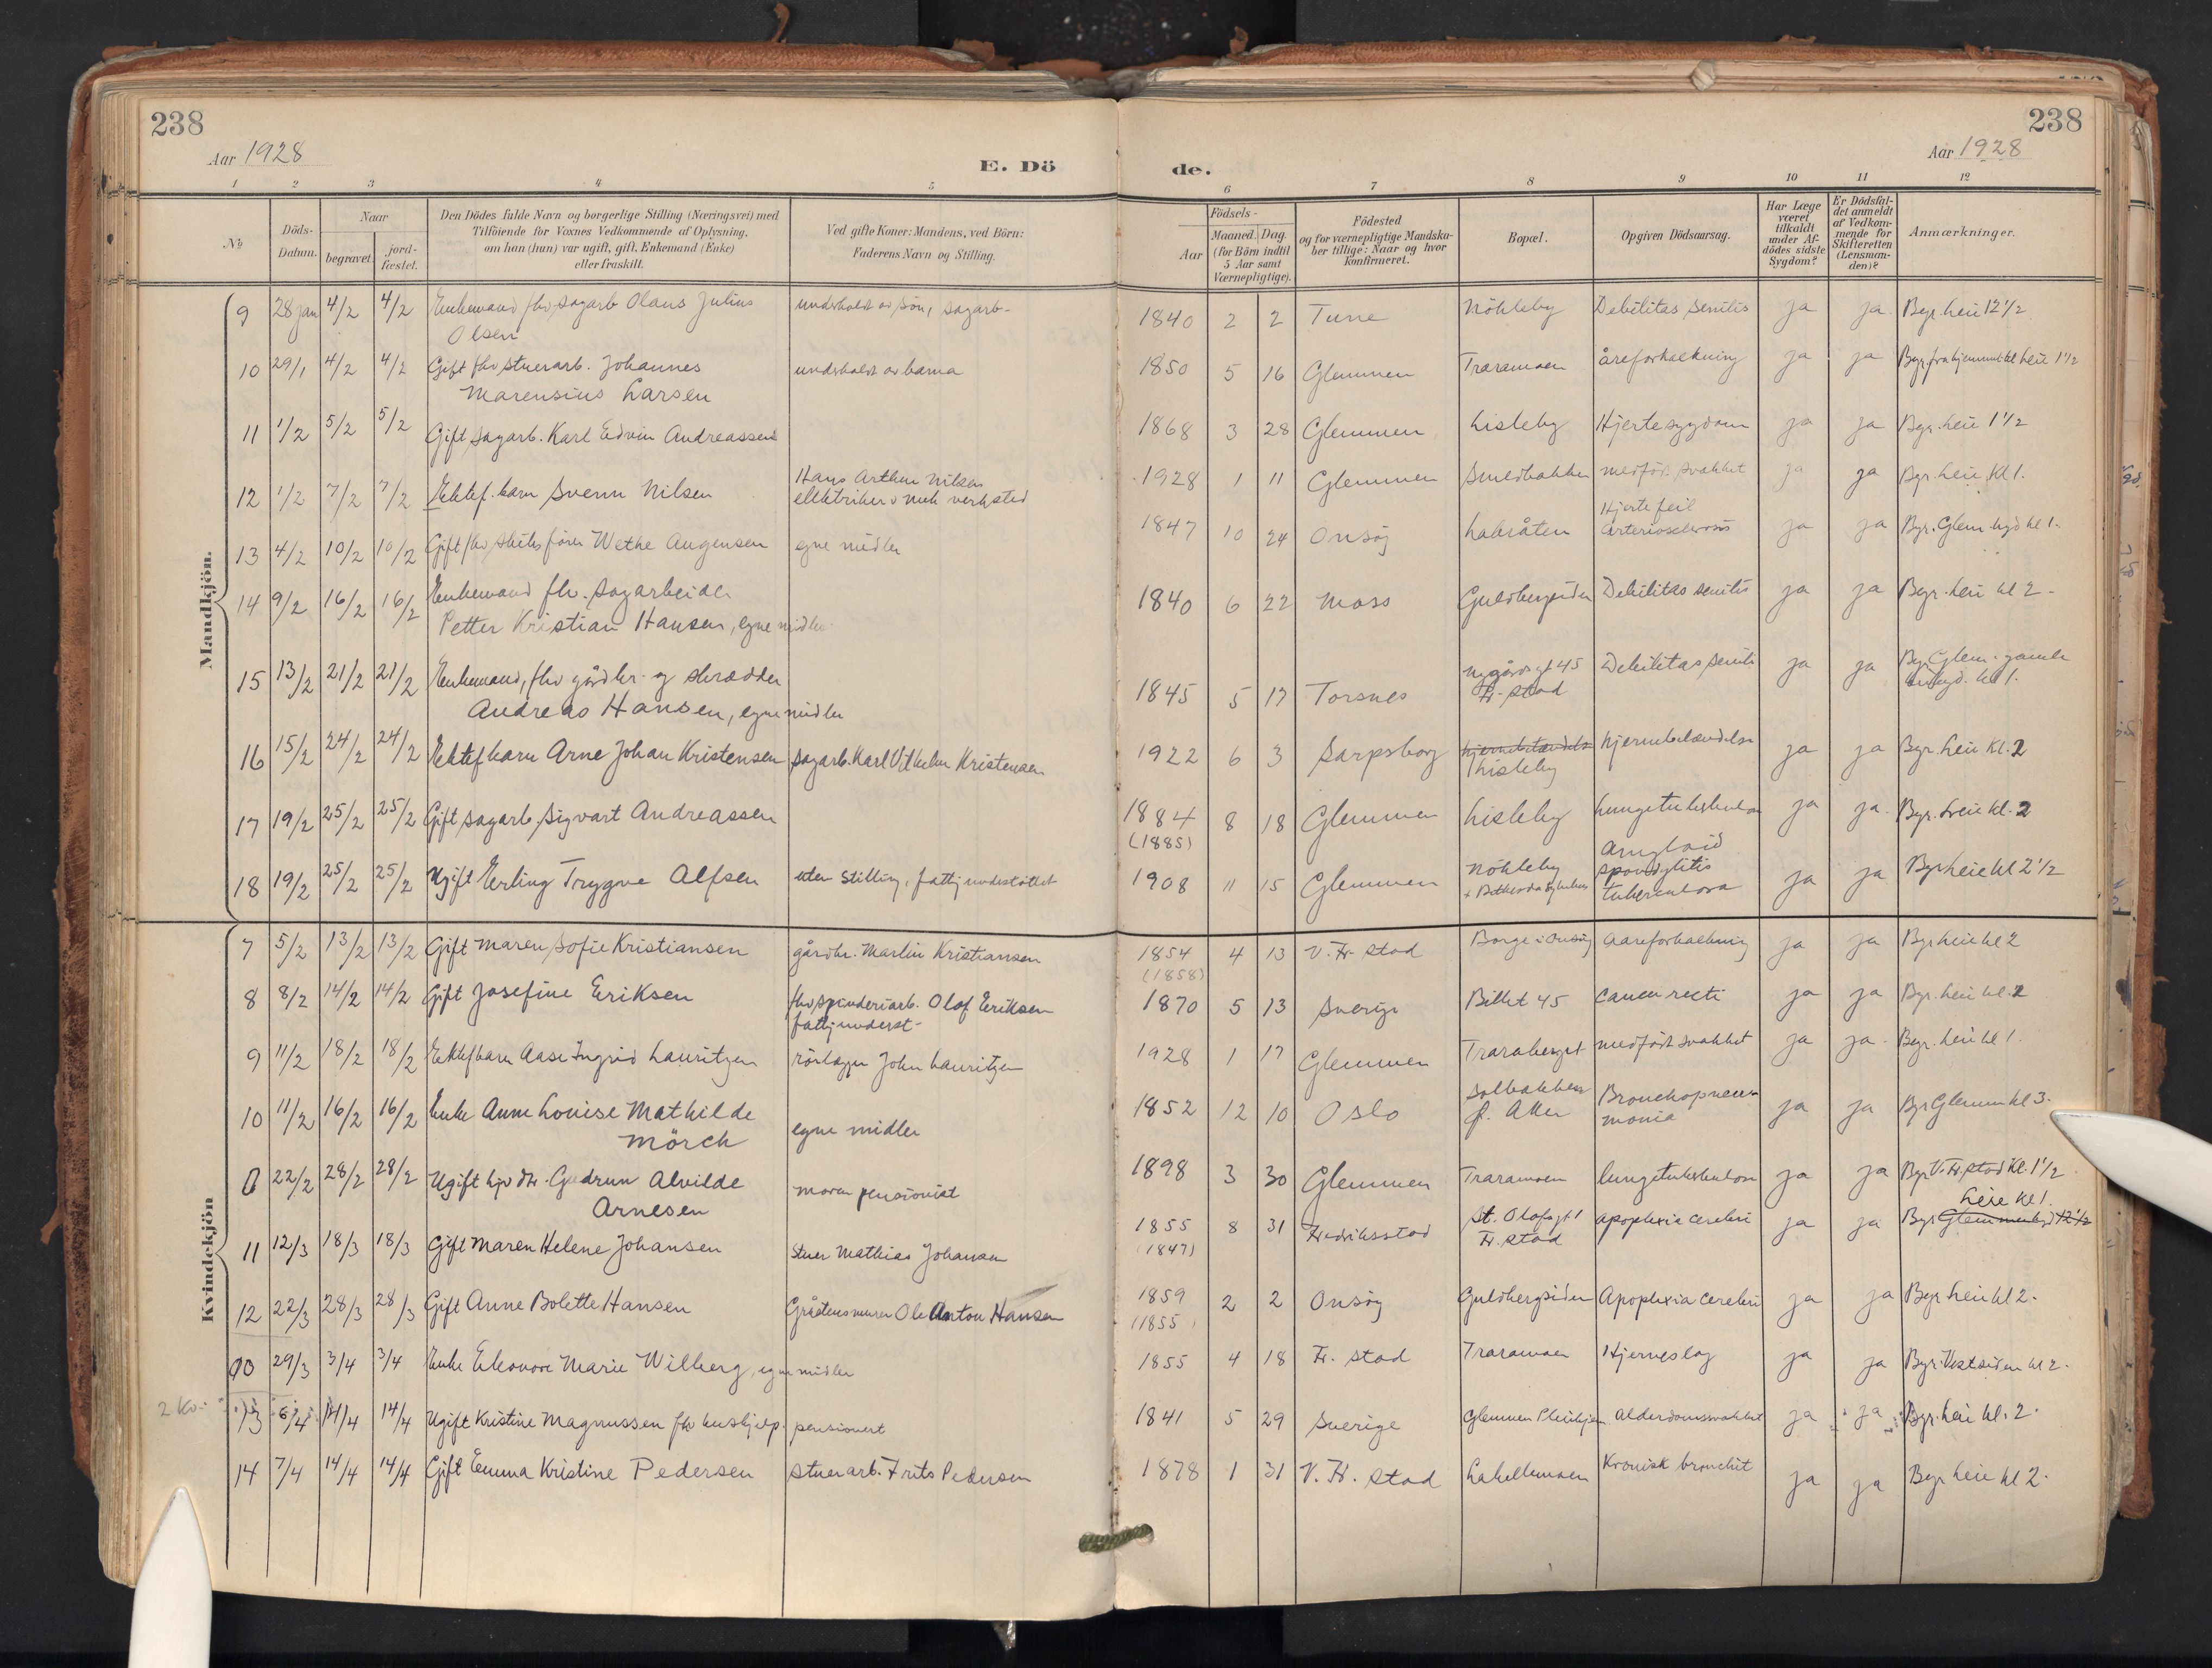 238
238
Aar 1928
E. Dö
de.
Aar 1928
1 2 3 4 5 6 7 8 9 10 11 12
№
Döds-Datum.
Naar
begravet.
jord-fæstet.
Den Dödes fulde Navn og borgerlige Stilling (Næringsvei) med
Tilföiende for Voxnes Vedkommende af Oplysning,
om han (hun) var ugift, gift, Enkemand (Enke)
eller fraskilt.
Ved gifte Koner: Mandens, ved Börn:
Faderens Navn og Stilling.
Födsels-
Aar
Maaned. Dag
(for Börn indtil
5 Aar samt
Værnepligtige).
Födested
og for værnepligtige Mandska-
ber tillige: Naar og hvor
konfirmeret.
Bopæl.
Opgiven Dödsaarsag.
Har Læge
været
tilkaldt
under Af-
dödes sidste
Sygdom?
Er Dödsfal-
det anmeldt
af Vedkom-
mende for
Skifteretten
(Lensman-
den)?
Anmærkninger.
Mandkjön.
9 28 jan 4/2 4/2 Enkemand fhv. sagarb Olaus Julius underholdt av sön, sagarb- 1840 2 2 Tune Nökleby Debilitas senilis ja ja Bgr. Leie 12 1/2
Olsen
10 29/1 4/2 4/2 Gift fhv stuerarb. Johannes underholdt av barna 1850 5 16 Glemmen Traramoen åreforkalkning ja ja Bgr. fra hjemmet kl Leie 1 1/2
Marensius Larsen
11 1/2 5/2 5/2 Gift sagarb. Karl Edvin Andreassen 1868 3 28 Glemmen Lisleby Hjertesygdom ja ja Bgr. Leie 1 1/2
Hans Arthur Nilsen
12 1/2 7/2 7/2 Ektef. barn Svenn Nilsen elektriker v mek verksted 1928 1 11 Glemmen Smedbakken medfød. svakhet ja ja Bgr. Leie Kl 1.
Hjertefeil
13 4/2 10/2 10/2 Gift fhv skibsfører Wethe Augensen egne midler 1847 10 24 Onsöj Labråten Arteriosclerosis ja ja Bgr. Glem. kl 1.
14 9/2 16/2 16/2 Enkemand fhv. sagarbeider 1840 6 22 Moss Guldbergsiden Debilitas senilis ja ja Bgr. Leie kl 2.
Petter Kristian Hansen, egne midler
15 13/2 21/2 21/2 Enkemand, fhv gårdbr. og skrædder 1845 5 17 Torsnes Nygårdsgt 45 Debilitas senilis ja ja Bgr. Glem. gamle
Andreas Hansen, egne midler Fr. stad kl 1.
16 15/2 24/2 24/2 Ektef barn Arne Johan Kristensen sagarb. Karl Vilhelm Kristensen 1922 6 3 Sarpsborg hjernebetændelse hjernebetændelse ja ja Bgr. Leie Kl. 2
Lisleby
17 19/2 25/2 25/2 Gift sagarb. Sigvart Andreassen 1884 8 18 Glemmen Lisleby Lungetuberkulose ja ja. Bgr. Leie Kl. 2
(1885)
Amyloid
18 19/2 25/2 25/2 Ugift Erling Trygve Alfsen uten stilling, fattigunderstöttet 1908 11 15 Glemmen Nökleby spondylitis ja ja Bgr Leie kl 2 1/2
tuberculosa
Kvindekjön
7 5/2 13/2 13/2 Gift Maren Sofie Kristiansen gårdbr. Martin Kristiansen 1854 4 13 V. Fr. stad Borge i Onsöj Aareforkalkning ja ja Bgr Leie kl 2
(1858)
8 8/2 14/2 14/2 Gift Josefine Eriksen fhv spinderiarb. Olaf Eriksen 1870 5 13 Sverige Billet 45 cancer recti ja ja Bgr. Leie kl. 2
fattigunderst.
9 11/2 18/2 18/2 Ektef barn Aase Ingrid Lauritzen rörlegger John Lauritzen 1928 1 17 Glemmen Traraberget medfødt svakhet ja ja. Bgr. Leie kl 1.
10 11/2 16/2 16/2 Enke Anne Louise Mathilde egne midler 1852 12 10 Oslo Solbakken Bronchopneu- ja ja Bgr Glemmen kl 3.
Mörch Aker monia
0 22/2 28/2 28/2 Ugift hjv dtr. Gudrun Alvilde moren pensionist 1898 3 30 Glemmen Traramoen lungetuberkulose ja ja Bgr V. Fr. stad Kl. 1 1/2
Arnesen
Leie kl 1.
11 12/3 18/3 18/3 Gift Maren Helene Johansen Stuer Mathias Johansen 1855 8 31 Fredriksstad St. Olafsgt 1 apoplexia cerebri ja ja Bgr Glemmen 12 1/2
(1847) Fr. stad
12 22/3 28/3 28/3 Gift Anne Bolette Hansen Gråstensmurer Ole Anton Hansen 1859 2 2 Onsöj Guldbergsiden Apoplexia cerebri ja ja Bgr Leie kl 2.
(1855)
00 29/3 3/4 3/4 Enke Eleonore Marie Wilberg, egne midler 1855 4 18 Fr. stad Traramoen Hjerneslag ja ja Bgr. Vestsiden kl 2.
2 Kv. 13 6/4 14/4 14/4 Ugift Kristine Magnussen fhv hushjelp. pensionert 1841 5 29 Sverige Glemmen Pleiehjem Alderdomssvakhet ja ja Bgr. Leie kl. 2.
14 7/4 14/4 14/4 Gift Emma Kristine Pedersen stuerarb. Frits Pedersen 1878 1 31 V. Fr. stad Lahellemoen Kronisk bronchit ja ja Bgr Leie kl 2.